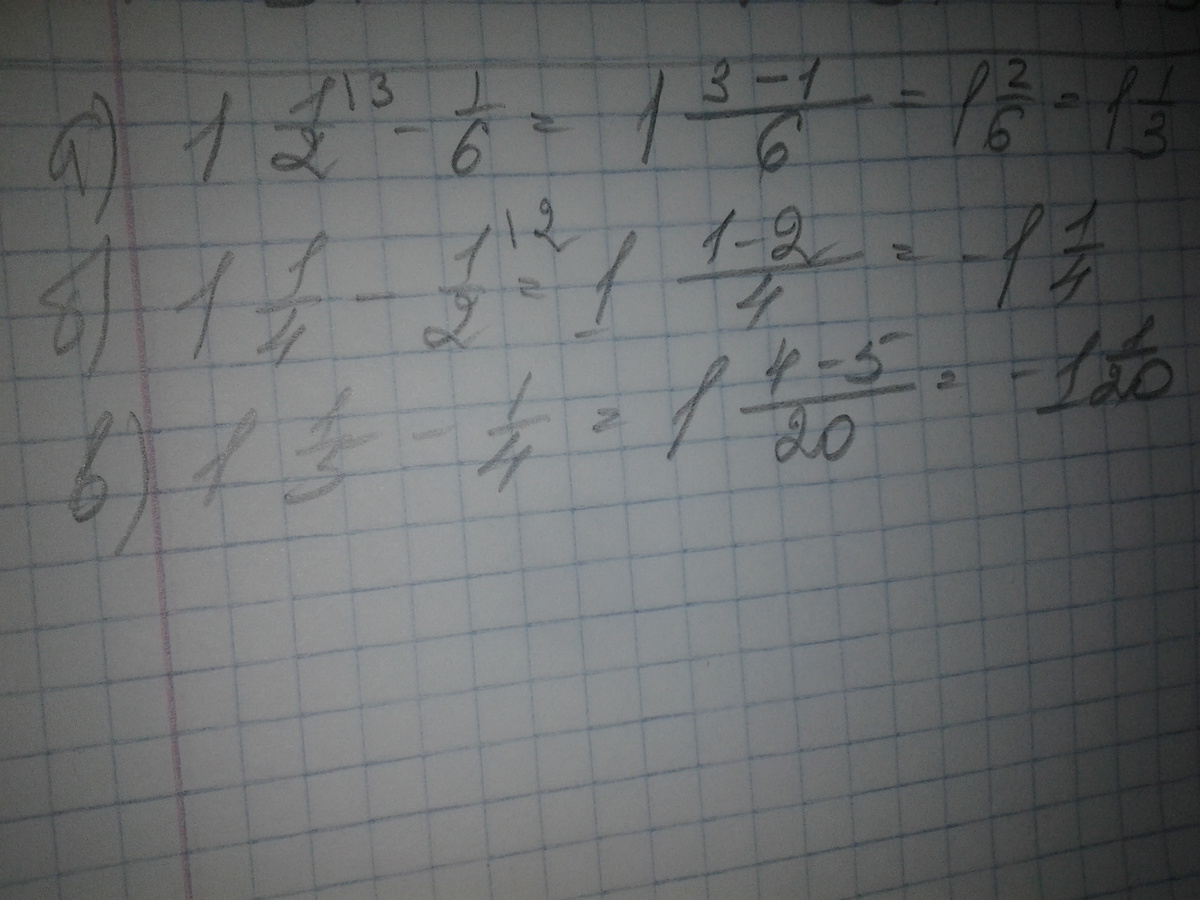 а) 1 1/2 |3 - 1/6 = 1 3-1/6 = 1 2/6 = 1 1/3
б) 1 1/4 - 1/2 |2 = 1 1-2/4 = -1 1/4
в) 1 1/5 - 1/4 = 1 4-5/20 = -1 1/20